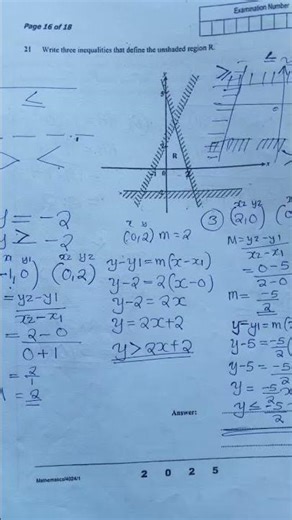 Examination Number
Page 16 of 18
21 Write three inequalities that define the unshaded region R.
R
y = -2
y ≥ -2
x1 y1 x2 y2
(-1, 0) (0, 2)
= y2-y1
x2-x1
= 2-0
0+1
= 2
1
= 2
x y
(0,2) m=2
y-y1=m(x-x1)
y-2=2(x-0)
y-2=2x
y=2x+2
y>2x+2
3 x2 y2
(2,0)
M=y2-y1
x2-x1
=0-5
2-0
m=-5
2
y-y1=m(
y-5=-5
2
y-5=-5
y=-5x
2
y≤-5
2
Answer:
Mathematics/4024/1
2 0 2 5